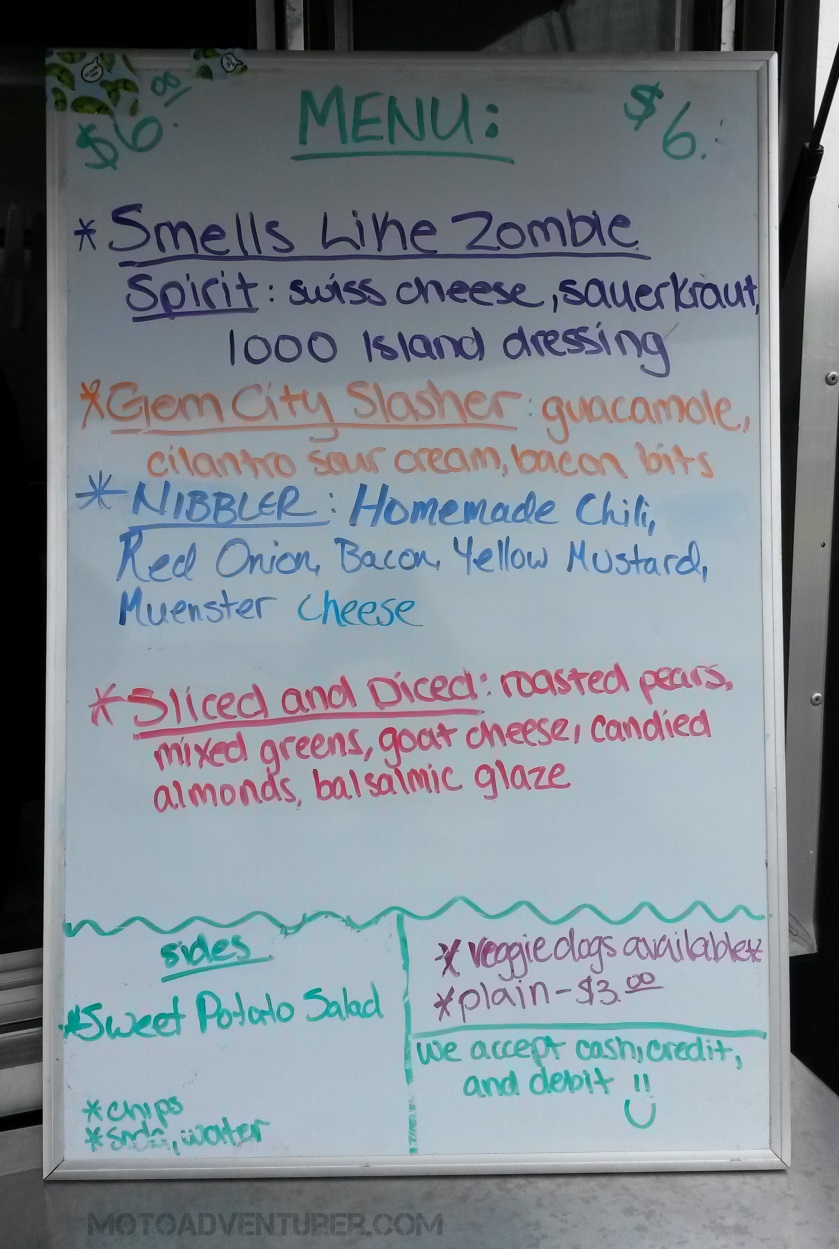 $6.00 MENU: $6.
* Smells Like Zombie
Spirit: swiss cheese, sauerkraut,
1000 Island dressing
* Gem City Slasher: guacamole,
cilantro sour cream, bacon bits
* NIBBLER: Homemade Chili,
Red Onion, Bacon, Yellow Mustard,
Muenster Cheese
* Sliced and Diced: roasted pears,
mixed greens, goat cheese, candied
almonds, balsalmic glaze
sides
* Sweet Potato Salad
* chips
* soda, water
* veggie dogs available*
* plain - $3.00
we accept cash, credit,
and debit !!
MOTOADVENTURER.COM